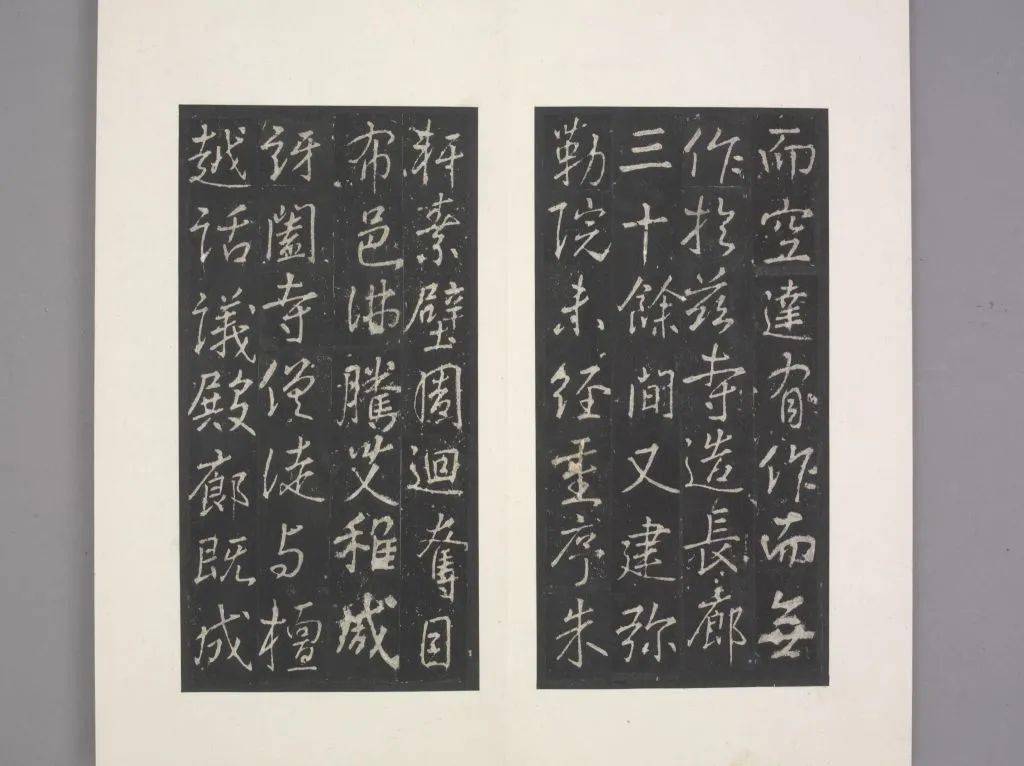 而空達有作而無
作於茲寺造長廊
三十餘間又建弥
勒院未經重序朱
軒素壁周迴奪目
布邑沸騰艾稚咸
訝闔寺僧徒与檀
越話議殿廊既成